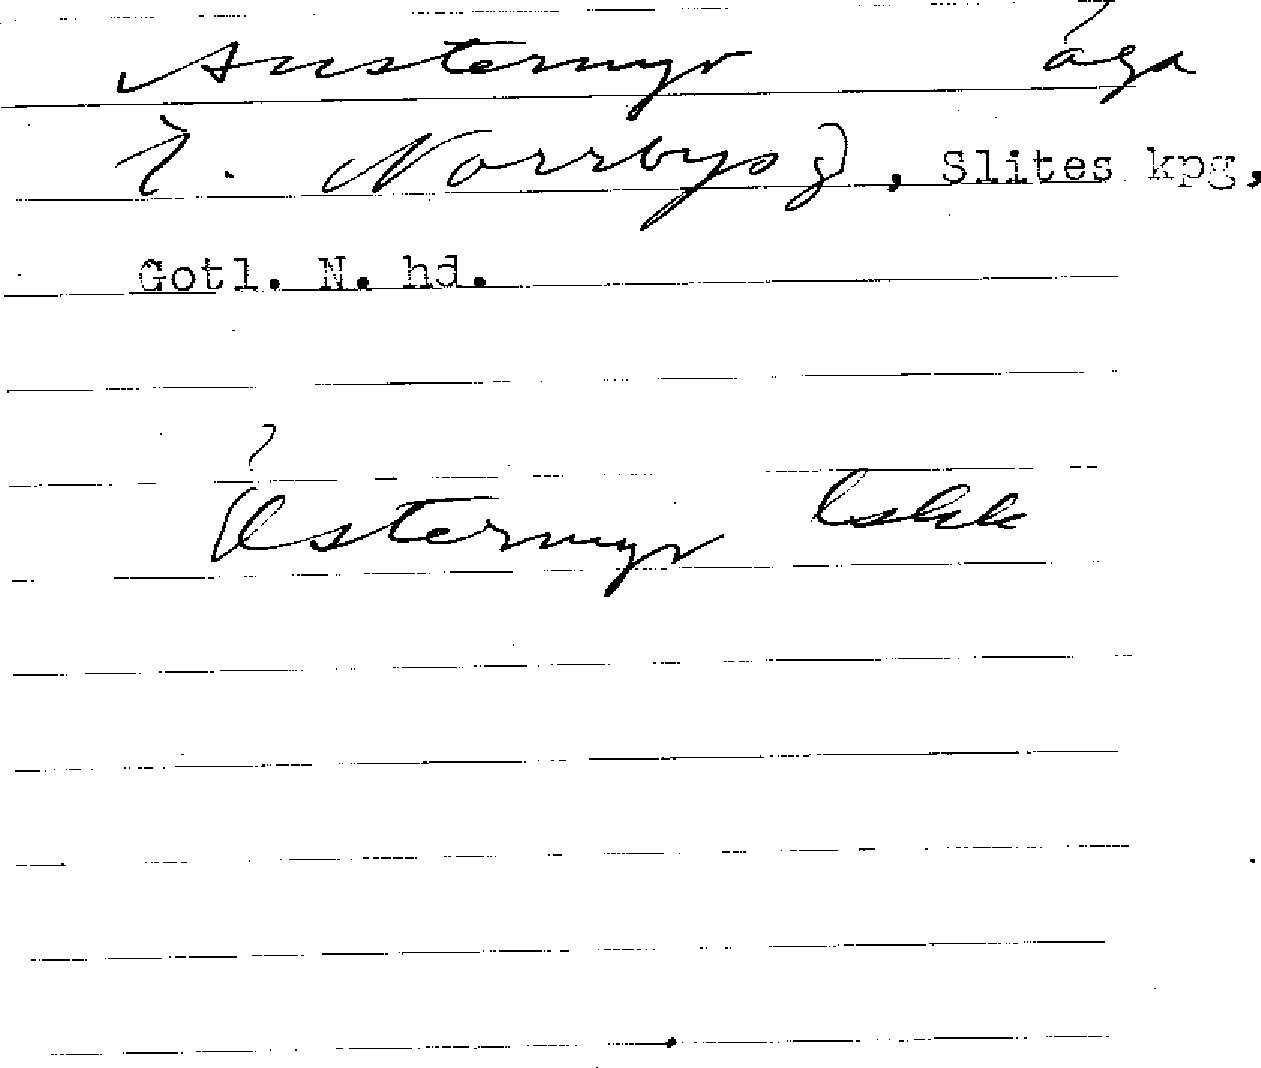 Austermyr äga
t. Norrbys g, Slites kpg,
Gotl. N. hd.
Östermyr